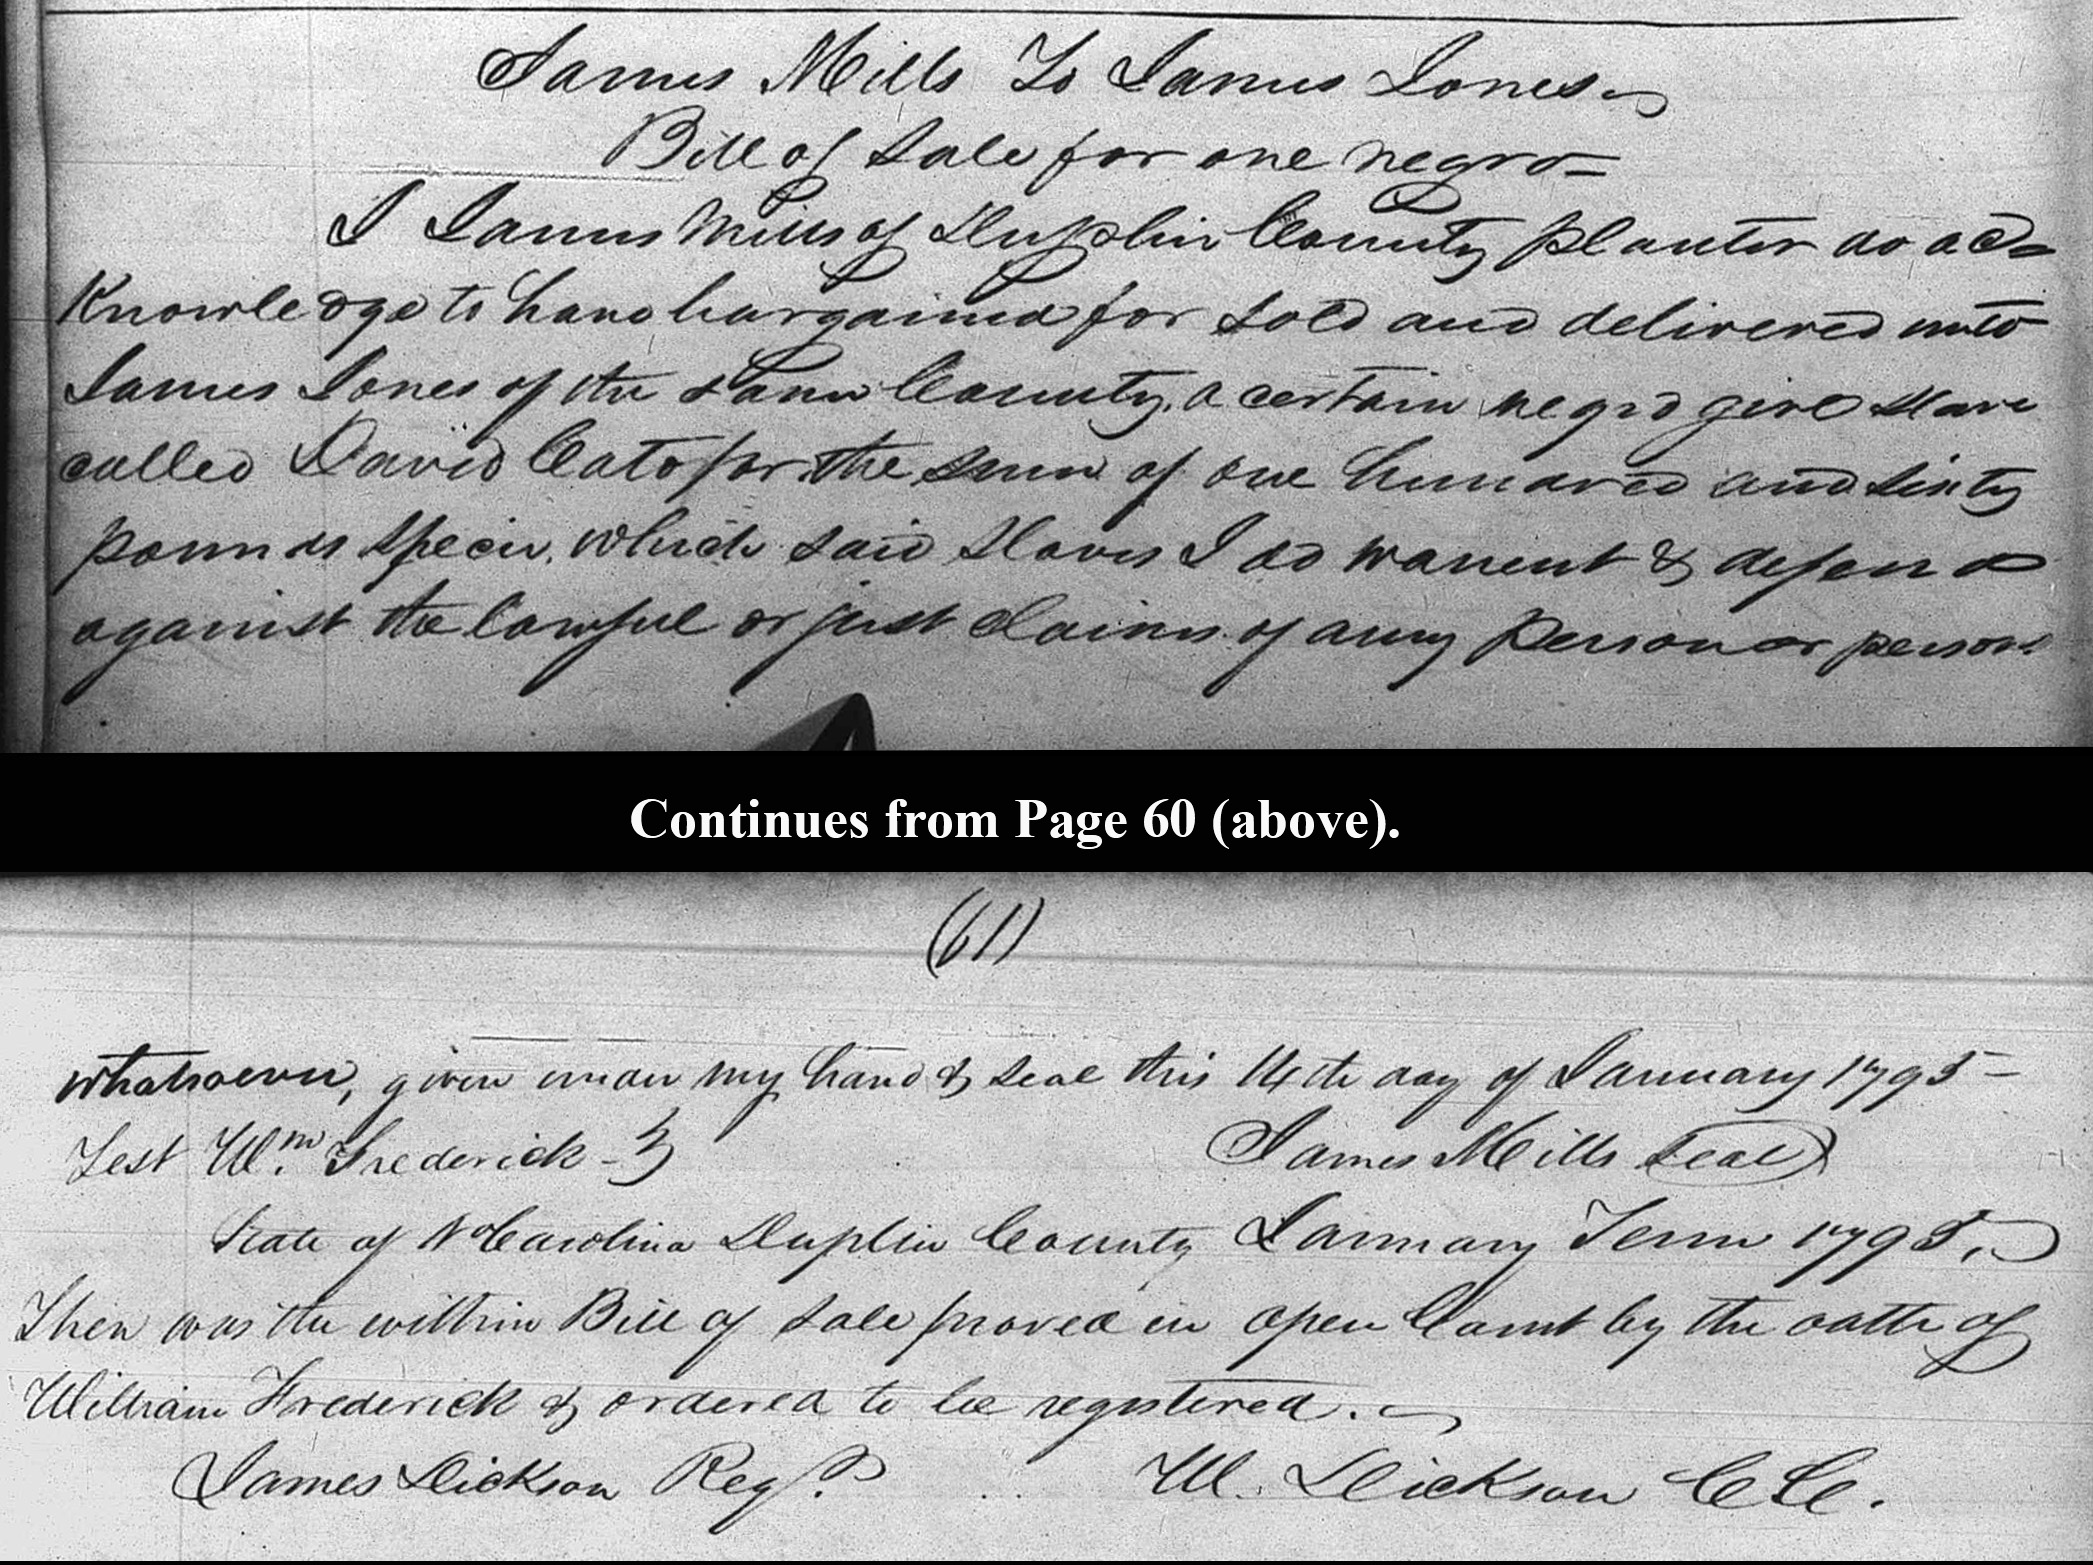 James Mills To James Jones
Bill of Sale for one negro=
I James Mills of Duplin County planter do ac=
knowledge to have bargained for sold and delivered unto
James Jones of the same County, a certain negro girl slave
called David Cato for the sum of one hundred and sixty
pounds specie, which said slaves I do warrent & defend
against the lawful or just claims of any person or persons
Continues from Page 60 (above).
(61)
whatsoever, given under my hand & seal this 14th day of January 1795 -
Test Wm. Frederick -
James Mills Seal
State of N Carolina Duplin County January Term 1795.
Then was the within Bill of Sale proved in open Court by the oath of
William Frederick & ordered to be registered.
James Dickson Regr.
W. Dickson C C.